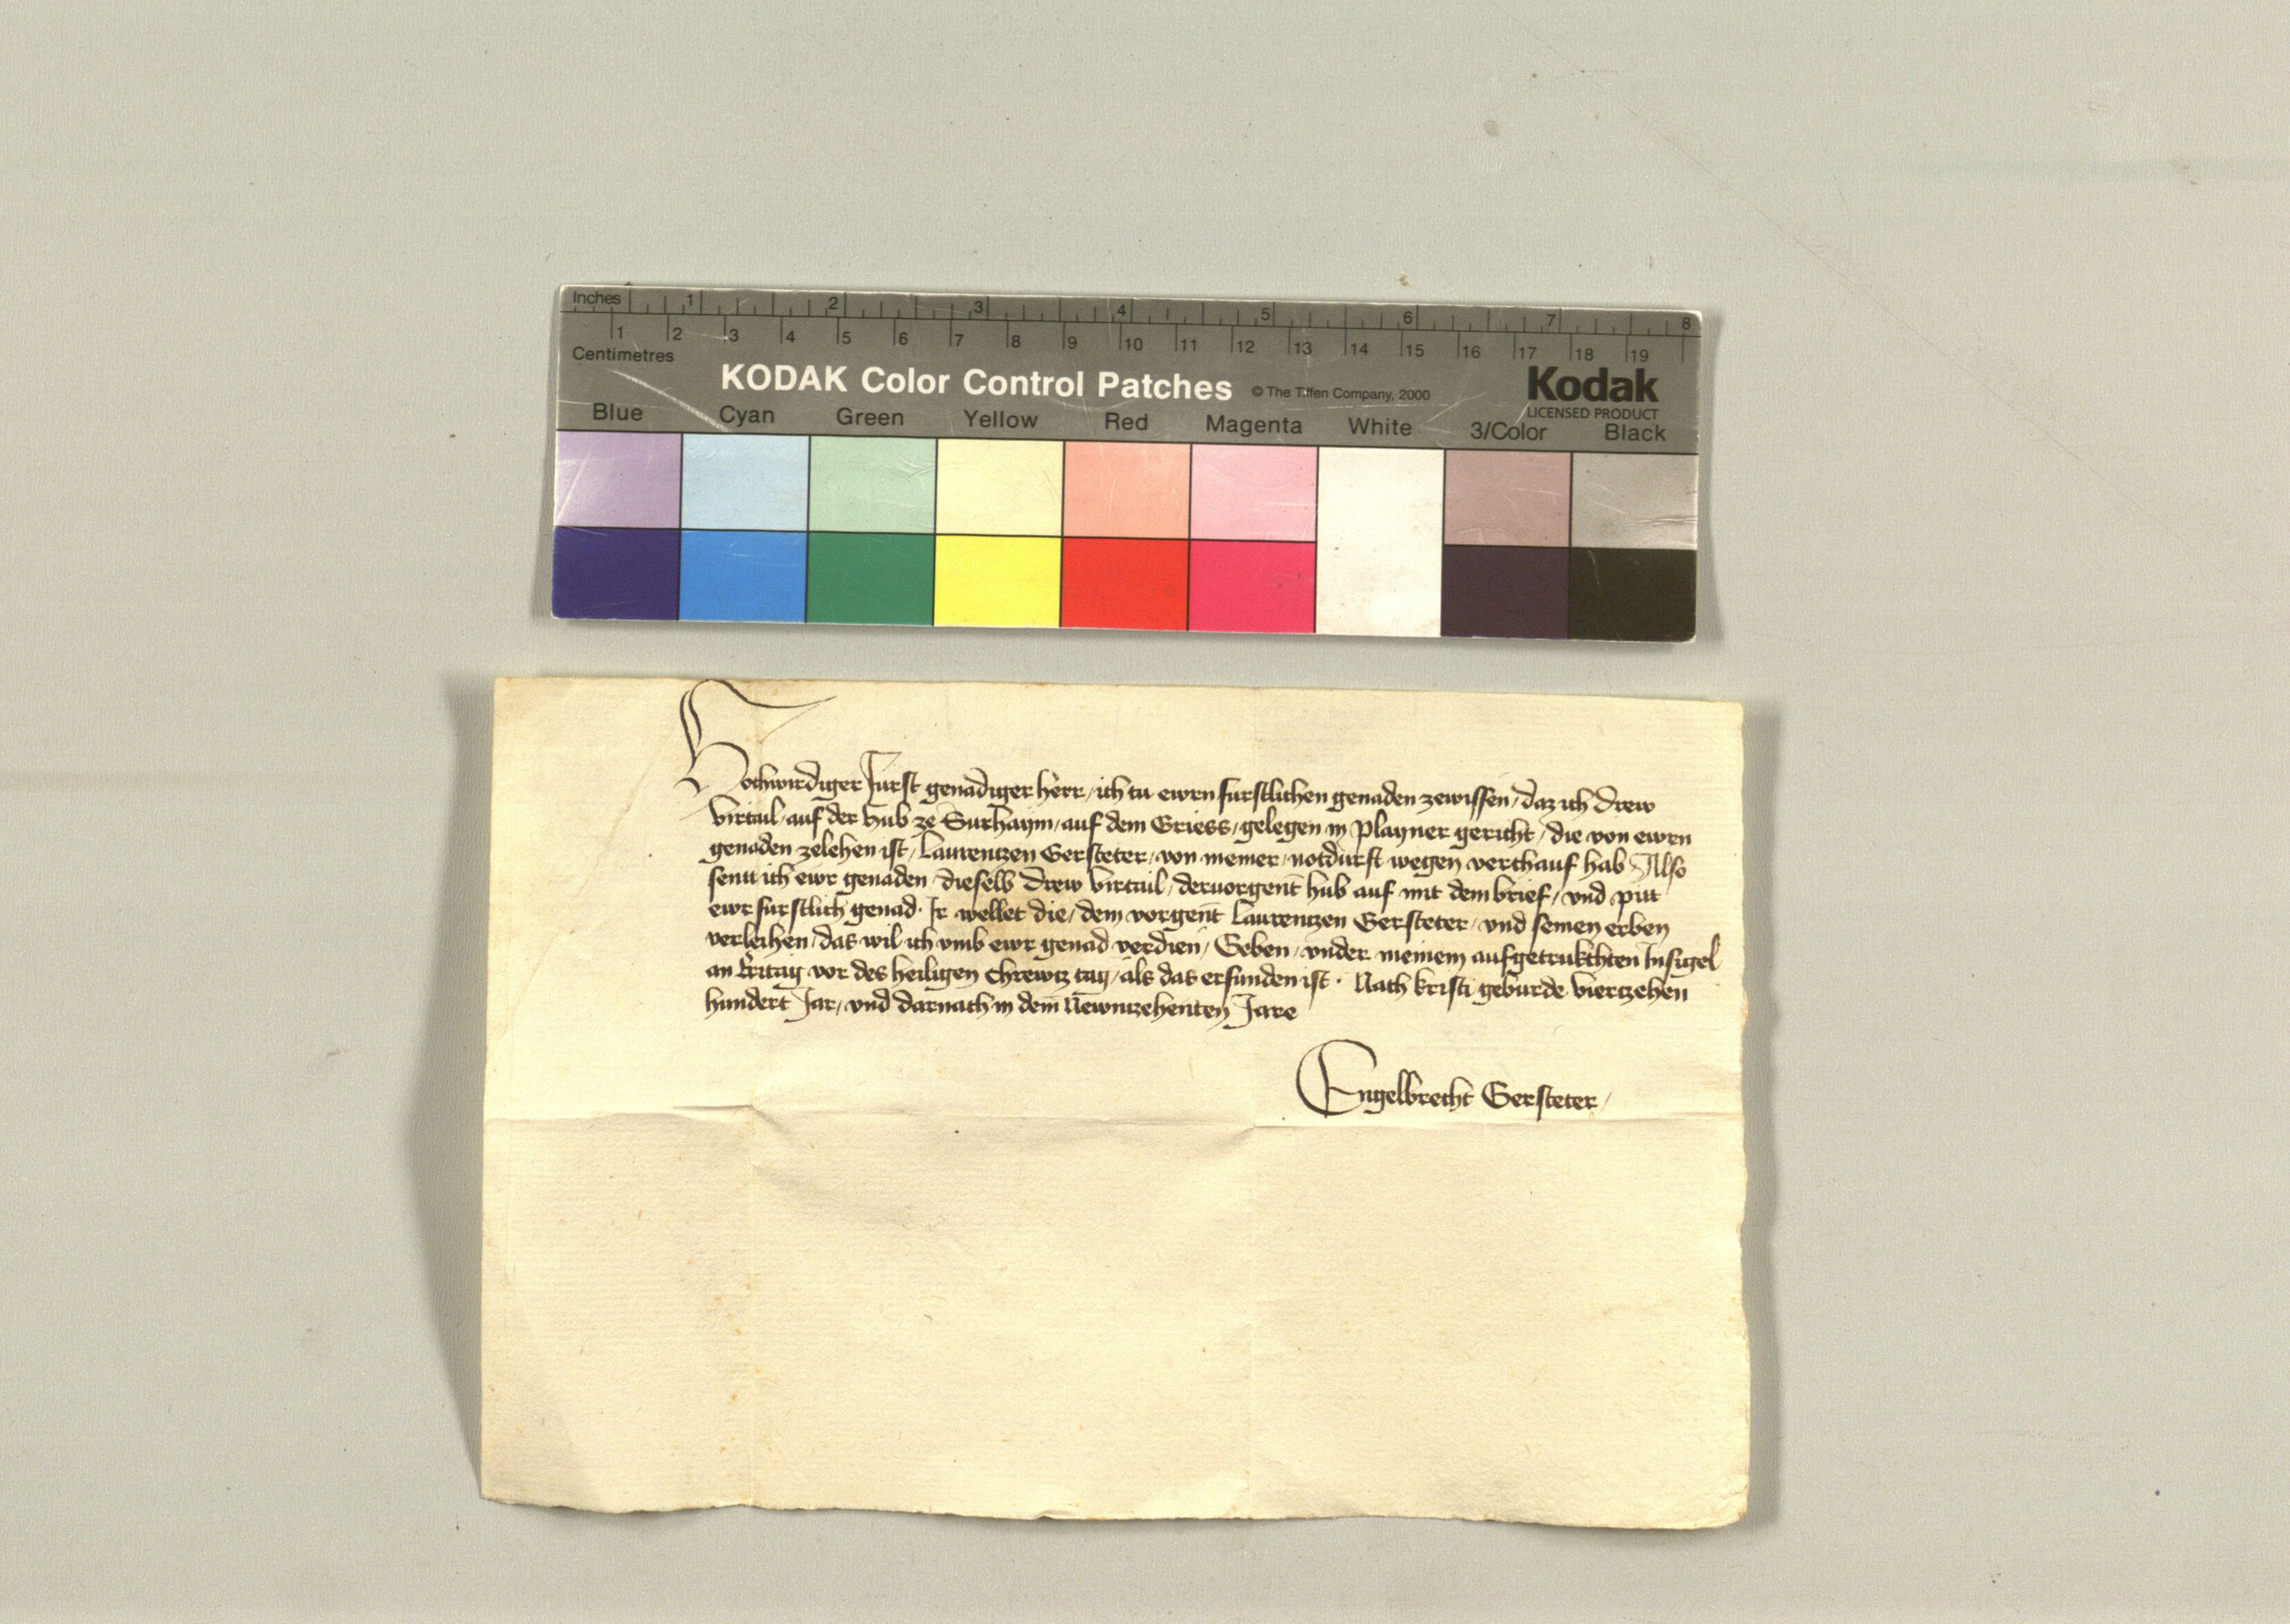 Inches 1 2 3 4 5 6 7 8
1 2 3 4 5 6 7 8 9 10 11 12 13 14 15 16 17 18 19
Centimetres
KODAK Color Control Patches © The Tiffen Company, 2000 Kodak
LICENSED PRODUCT
Blue Cyan Green Yellow Red Magenta White 3/Color Black
Hochwirdiger Fürst genadiger herr / ich tu ewrn furstlichen genaden zewissen / daz ich drew
virtail / auf der hub ze Surhaym / auf dem Griess / gelegen in playner gericht / die von ewrn
genaden zelehen ist / Laurentzen Gersteter / von meiner / notdurft wegen verchauf hab Also
sent ich ewr genaden / dieselb drew virtail / dervorgent hub auf mit dem brief / vnd pitt
ewr furstlich genad · Ir wellet die / dem vorgent Laurentzen Gersteter / vnd seinen erben
verleihen / das wil ich vmb ewr genad verdien / Geben / vnder meinem aufgetrukchten Insigel
an Eritag vor des heiligen chrewtz tag / als das erfunden ist · Nach kristi geburde viertzehen
hundert Jar / vnd darnach in dem Newntzehenten Jare
Engelbrecht Gersteter /